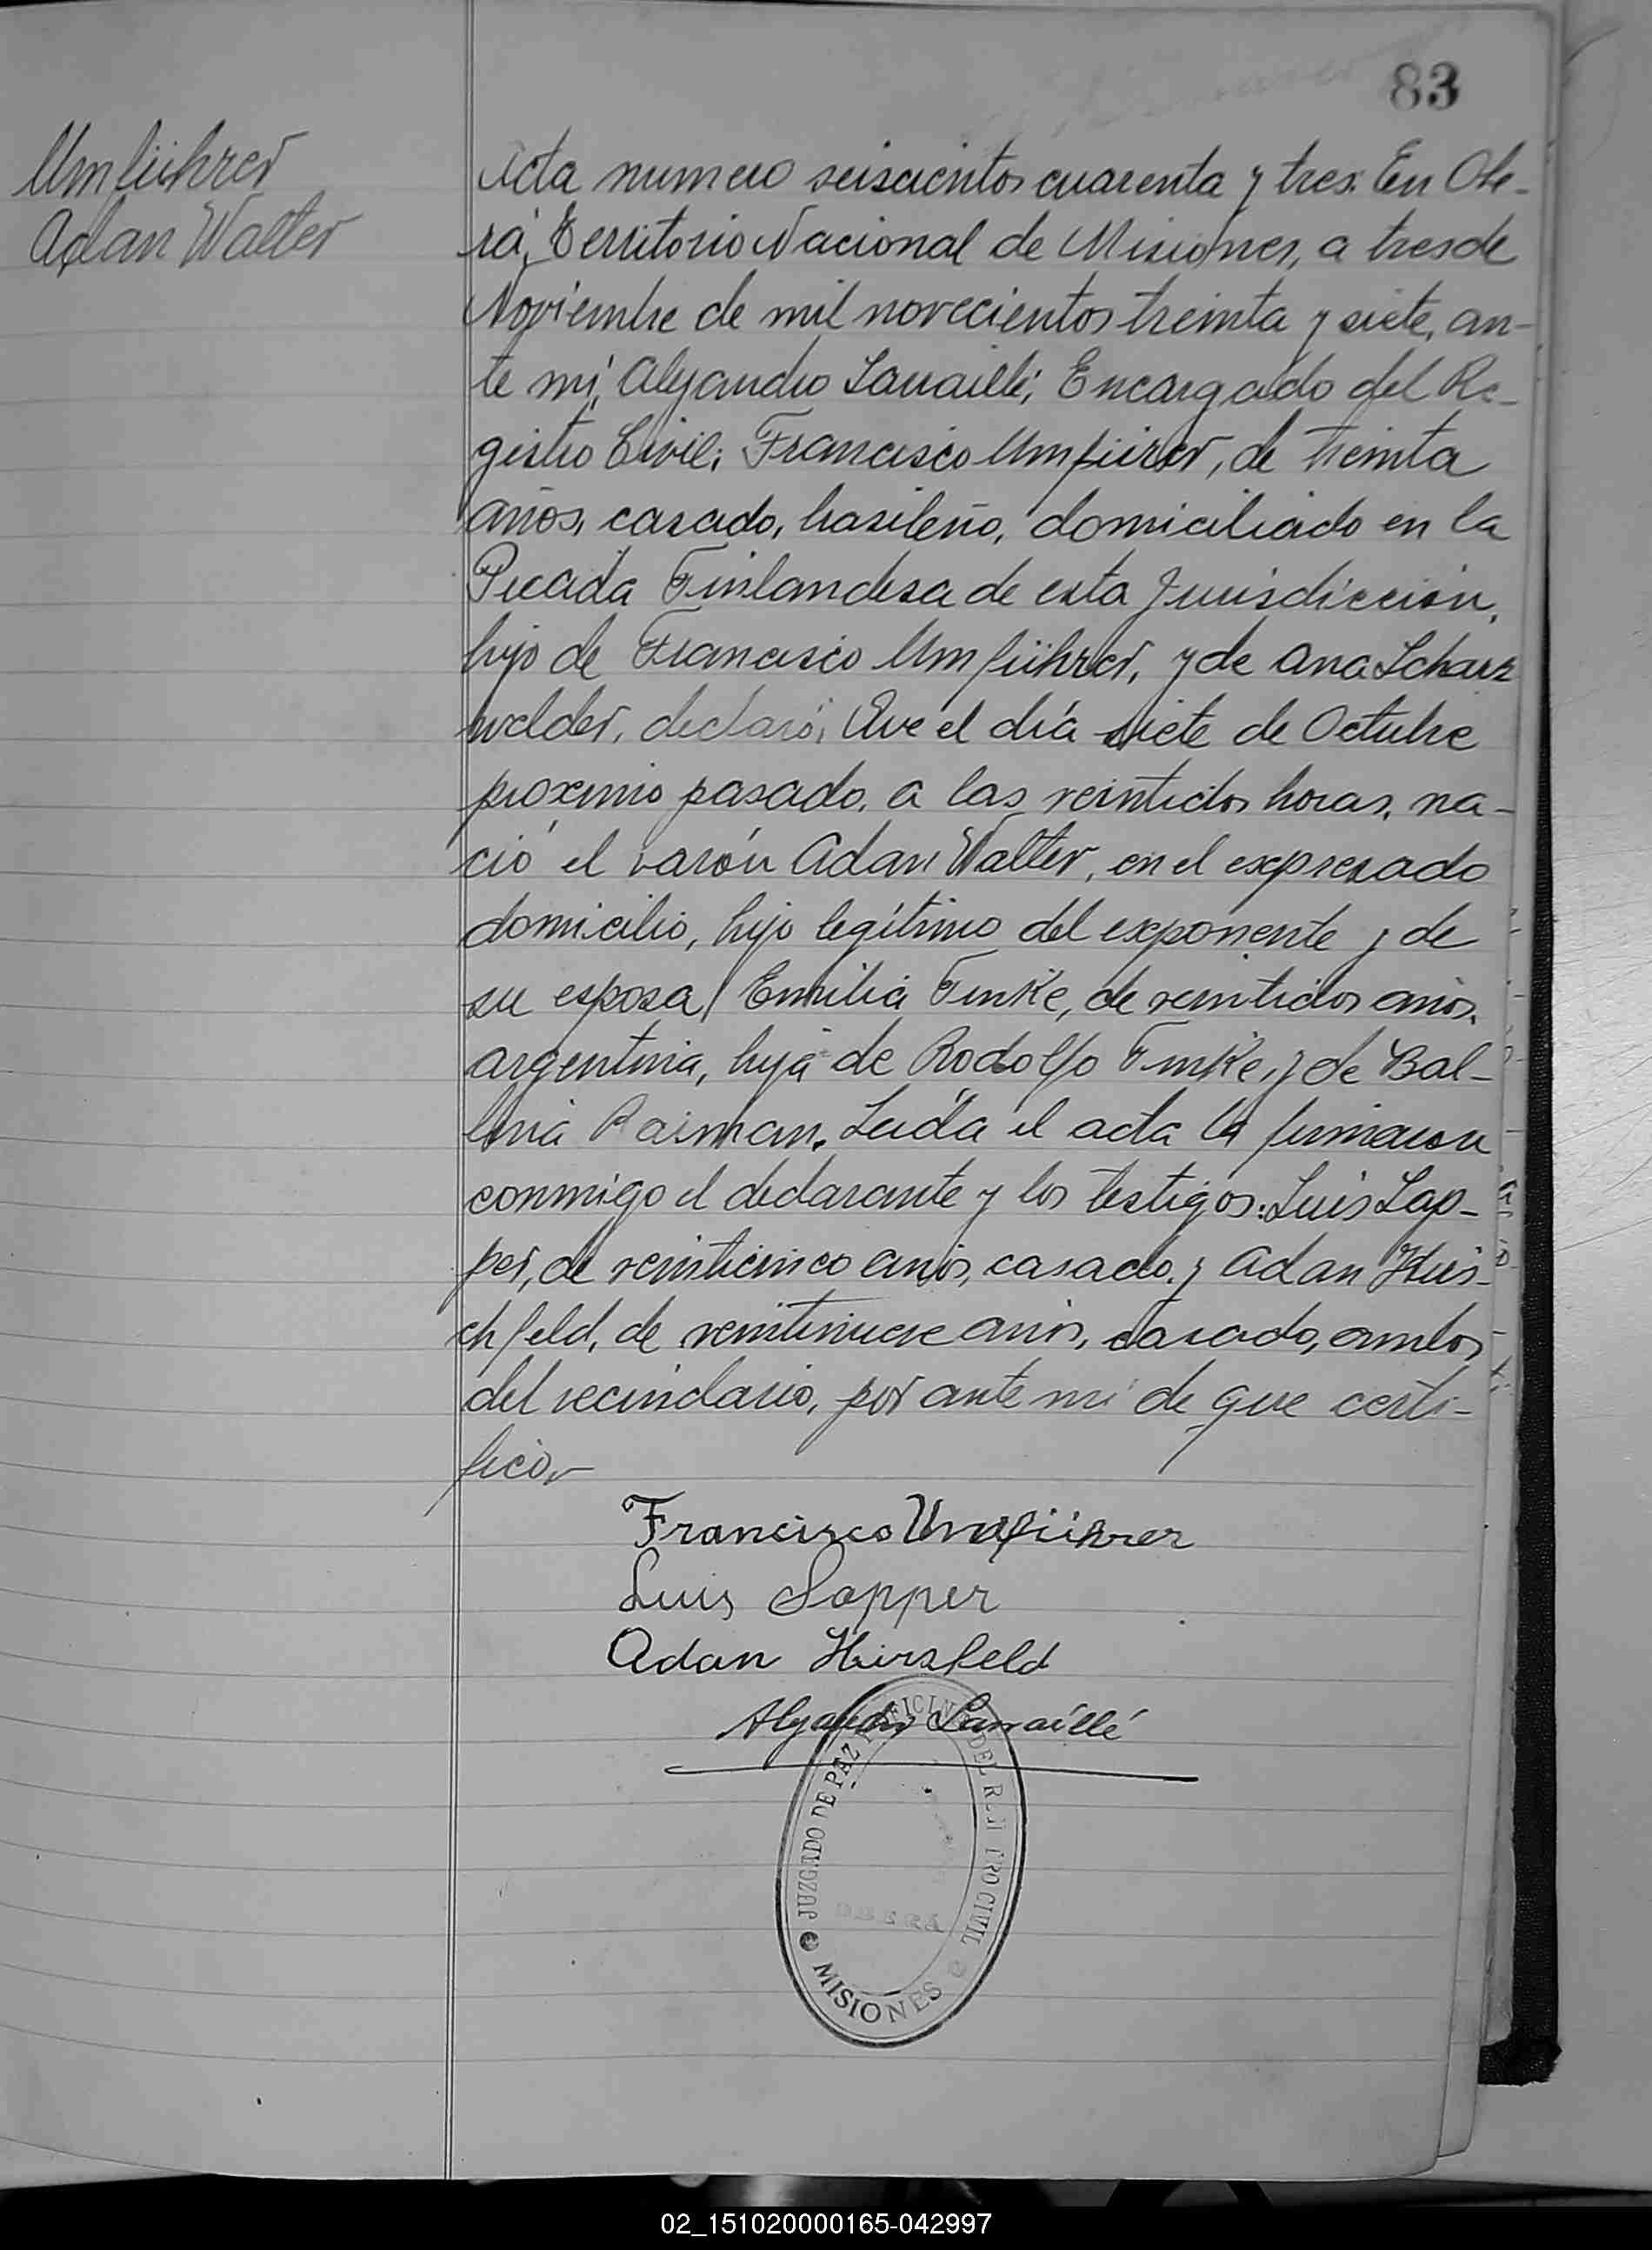 83
Umführer
Adan Walter
Acta numero seiscientos cuarenta y tres. En Obe-
rá, Territorio Nacional de Misiones, a tres de
Noviembre de mil novecientos treinta y siete, an-
te mí, Alejandro Larraillé, Encargado del Re-
gistro Civil; Francisco Umfürer, de treinta
años, casado, brasileño, domiciliado en la
Picada Finlandesa de esta Jurisdicción,
hijo de Francisco Umführer, y de Ana Scharz
welder, declaró: Que el día siete de Octubre
proximo pasado, a las veintidos horas, na-
ció el varón Adan Walter, en el expresado
domicilio, hijo legítimo del exponente y de
su esposa Emilia Finke, de veintidos años,
argentina, hija de Rodolfo Finke, y de Bal-
bina Raiman. Leída el acta la firmaron
conmigo el declarante y los testigos: Luis Sap-
per, de veinticinco años, casado, y Adan Hirs-
chfeld, de veintinueve años, casado, ambos
del vecindario, por ante mi de que certi-
fico,
Francisco Umführer
Luis Sapper
Adan Hirsfeld
Alejandro Larraillé
JUZGADO DE PAZ Y OFICINA DEL REGISTRO CIVIL
OBERÁ
MISIONES
02_151020000165-042997